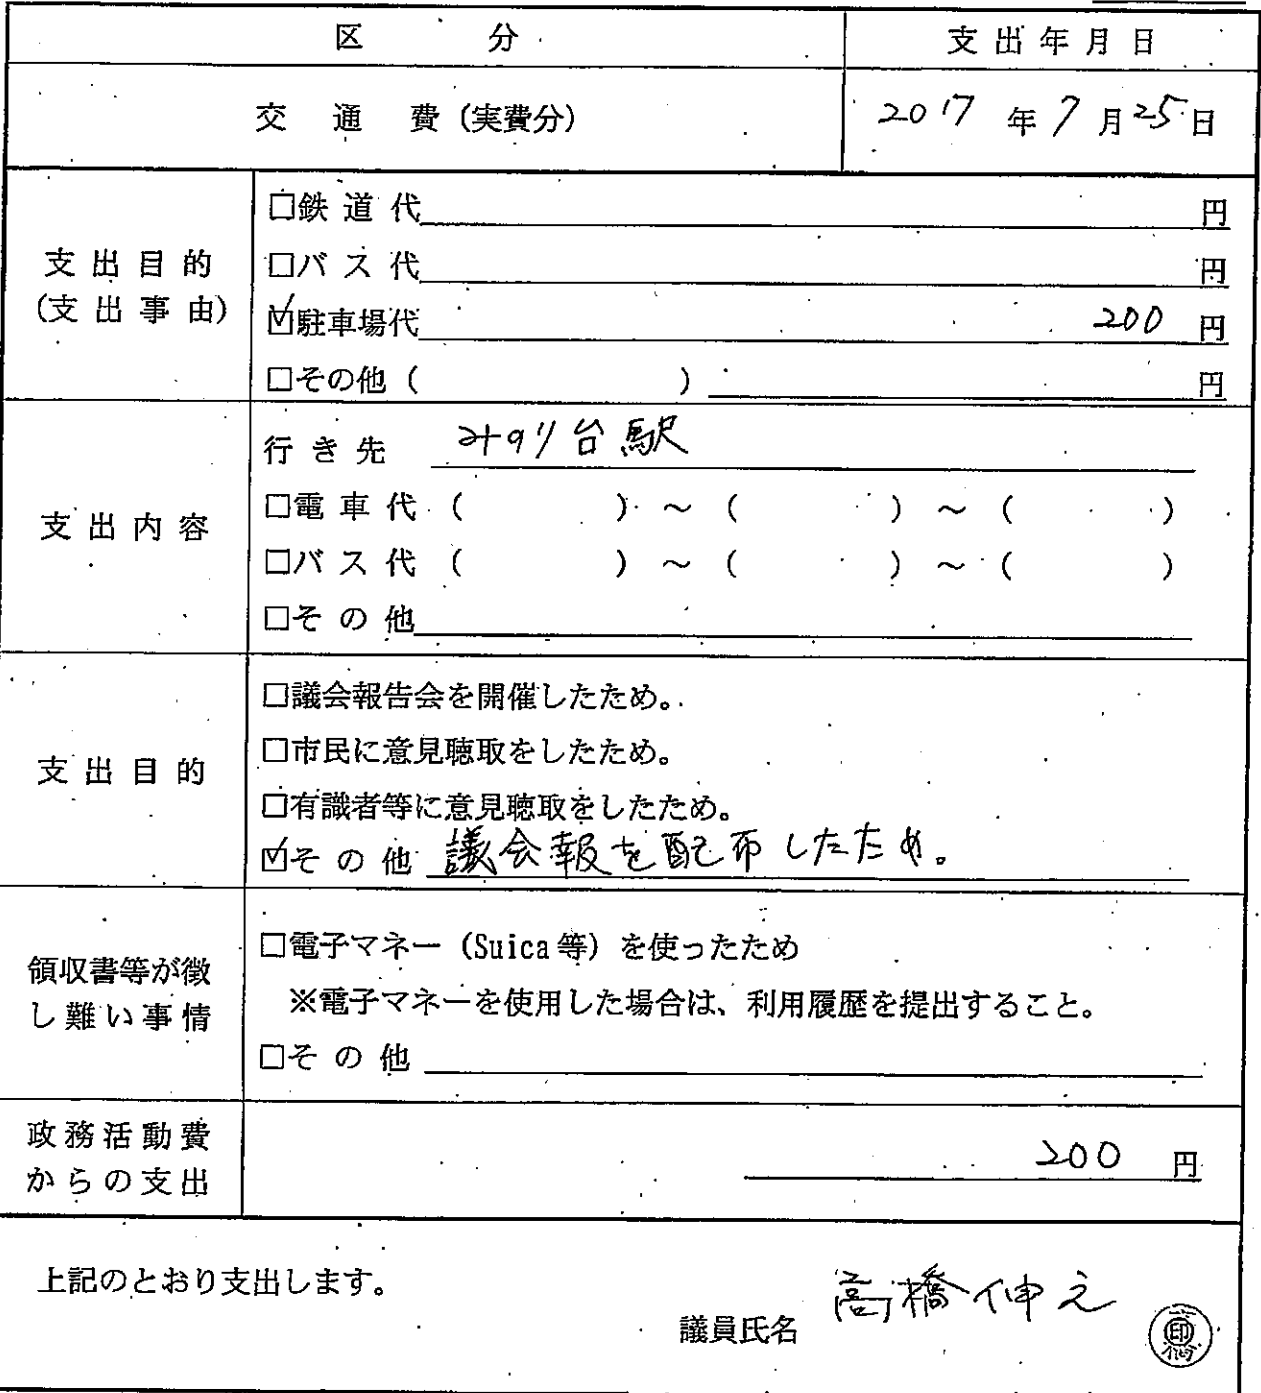 区 分 支出年月日
交 通 費（実費分） 2017 年 7 月 25 日
支出目的
（支出事由）
□鉄道代 円
□バス代 円
☑駐車場代 200 円
□その他（ ） 円
支出内容
行き先 みのり台駅
□電車代（ ）～（ ）～（ ）
□バス代（ ）～（ ）～（ ）
□その他
支出目的
□議会報告会を開催したため。
□市民に意見聴取をしたため。
□有識者等に意見聴取をしたため。
☑その他 議会報を配布したため。
領収書等が徴
し難い事情
□電子マネー（Suica等）を使ったため
※電子マネーを使用した場合は、利用履歴を提出すること。
□その他
政務活動費
からの支出
200 円
上記のとおり支出します。
議員氏名 高橋伸之
印